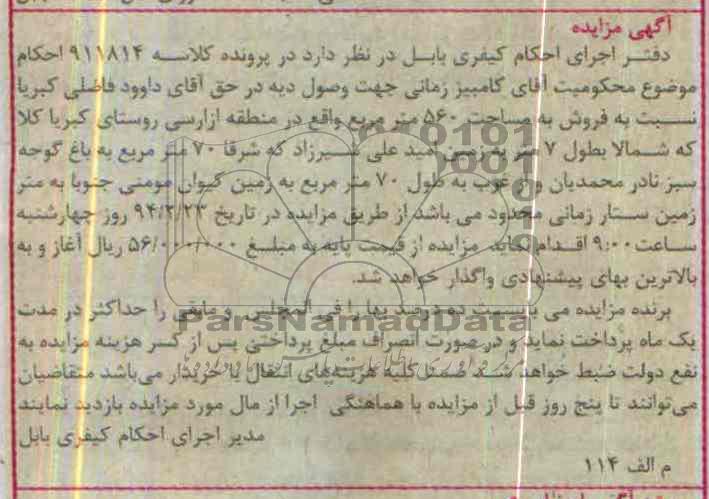 آگهی مزایده
دفتر اجرای احکام کیفری بابل در نظر دارد در پرونده کلاسه ۹۱۱۸۱۴ احکام
موضوع محکومیت آقای کامبیز زمانی جهت وصول دیه در حق آقای داوود فاضلی کبریا
نسبت به فروش به مساحت ۵۶۰ متر مربع واقع در منطقه ازارسی روستای کبریا کلا
که شمالا بطول ۷ متر به زمین امید علی شیرزاد که شرقا ۷۰ متر مربع به باغ گوجه
سبز نادر محمدیان و از غرب به طول ۷۰ متر مربع به زمین کیوان مومنی جنوبا به متر
زمین ستار زمانی محدود می باشد از طریق مزایده در تاریخ ۹۴/۲/۲۳ روز چهارشنبه
ساعت ۹:۰۰ اقدام نماید. مزایده از قیمت پایه به مبلغ ۵۶/۰۰۰/۰۰۰ ریال آغاز و به
بالاترین بهای پیشنهادی واگذار خواهد شد.
برنده مزایده می بایست ده درصد بها را فی المجلس و مابقی را حداکثر در مدت
یک ماه پرداخت نماید و در صورت انصراف مبلغ پرداختی پس از کسر هزینه مزایده به
نفع دولت ضبط خواهد شد ضمنا کلیه هزینه‌های انتقال با خریدار می‌باشد متقاضیان
می‌توانند تا پنج روز قبل از مزایده با هماهنگی اجرا از مال مورد مزایده بازدید نمایند
مدیر اجرای احکام کیفری بابل
م الف ۱۱۴
ParsNamadData